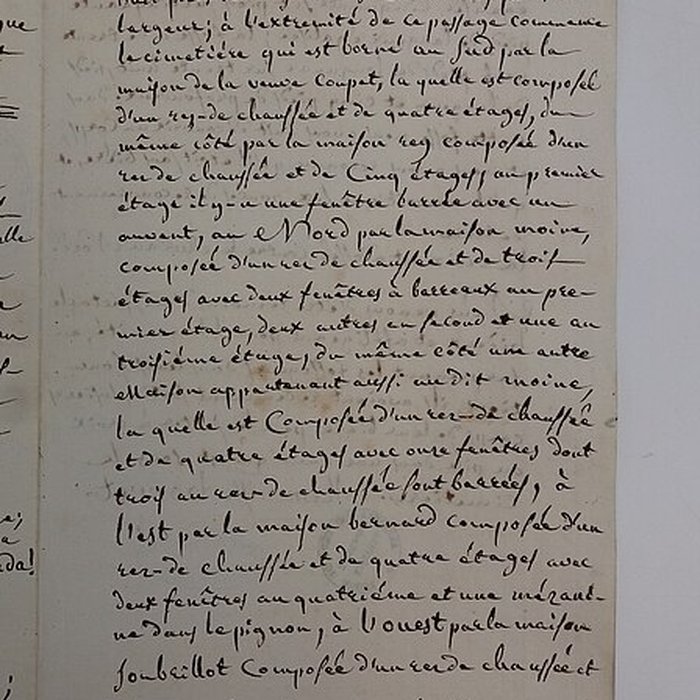 que
largeur; à l'extremité de ce passage commence
le cimetiére qui est borné au sud par la
maison de la veuve Coupet, la quelle est composée
d'un rez-de chaussée et de quatre étages, du
même côté par la maison rey composée d'un
rez de chaussée et de Cinq étages, au premier
étage il y-a une fenêtre barrée avec un
auvent, au Nord par la maison moine,
composée d'un rez de chaussée et de trois
étages avec deux fenêtres à barreaux au pre-
mier étage, deux autres en second et une au
troisiéme étage, du même côté une autre
Maison appartenant aussi au dit moine,
la quelle est Composée d'un rez-de chaussée
et de quatre étages avec onze fenêtres dont
trois au rez-de chaussée sont barrées, à
l'est par la maison bernard composée d'un
rez-de chaussée et de quatre étages avec
deux fenêtres au quatriéme et une mézani-
ne dans le pignon, à l'ouest par la maison
Soubeillot Composée d'un rez de chaussée et